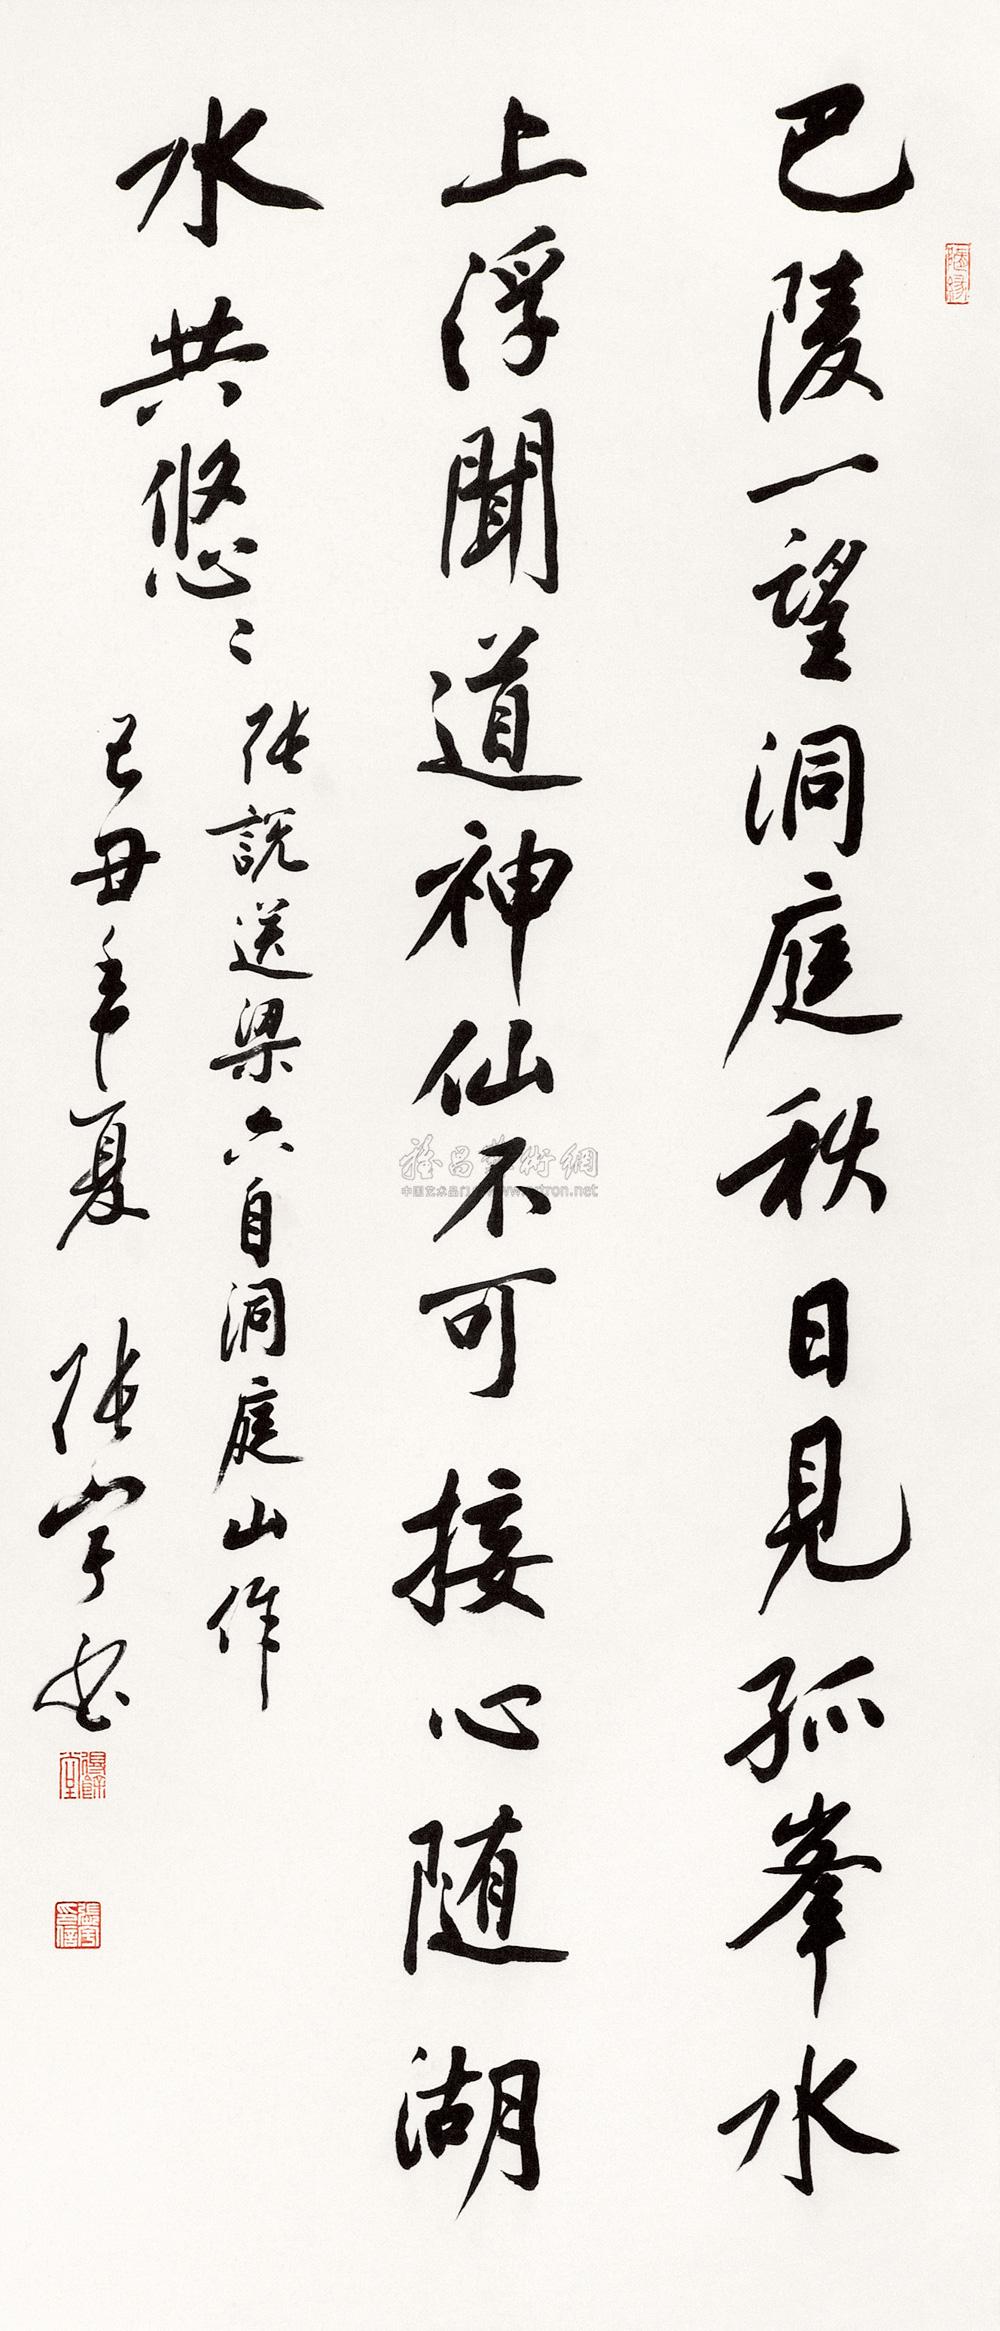 巴陵一望洞庭秋日見孤峯水
上浮聞道神仙不可接心随湖
水共悠〻
張說送梁六自洞庭山作
己丑年夏 張宇書
張宇印信
雅昌藝術網
中国艺术品门户 www.artron.net